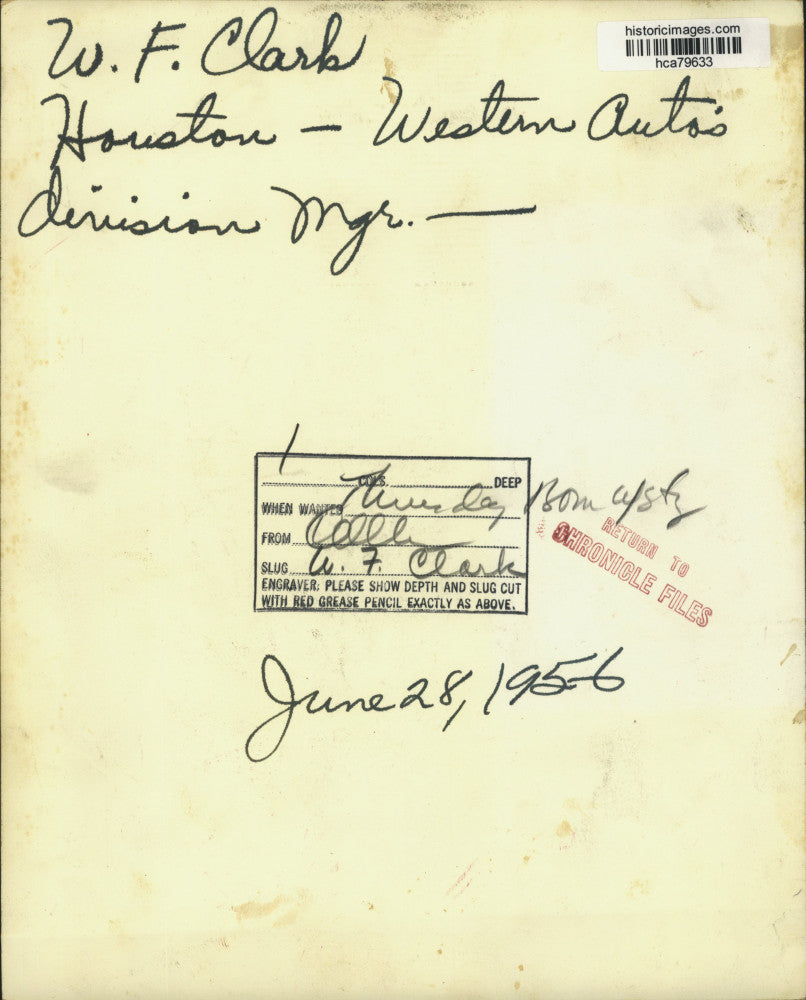 historicimages.com
hca79633
W. F. Clark
Houston — Western Auto's
division Mgr. —
1
COLS. DEEP
WHEN WANTED Thursday
FROM
SLUG W. F. Clark
ENGRAVER: PLEASE SHOW DEPTH AND SLUG CUT
WITH RED GREASE PENCIL EXACTLY AS ABOVE.
RETURN TO
CHRONICLE FILES
June 28, 1956